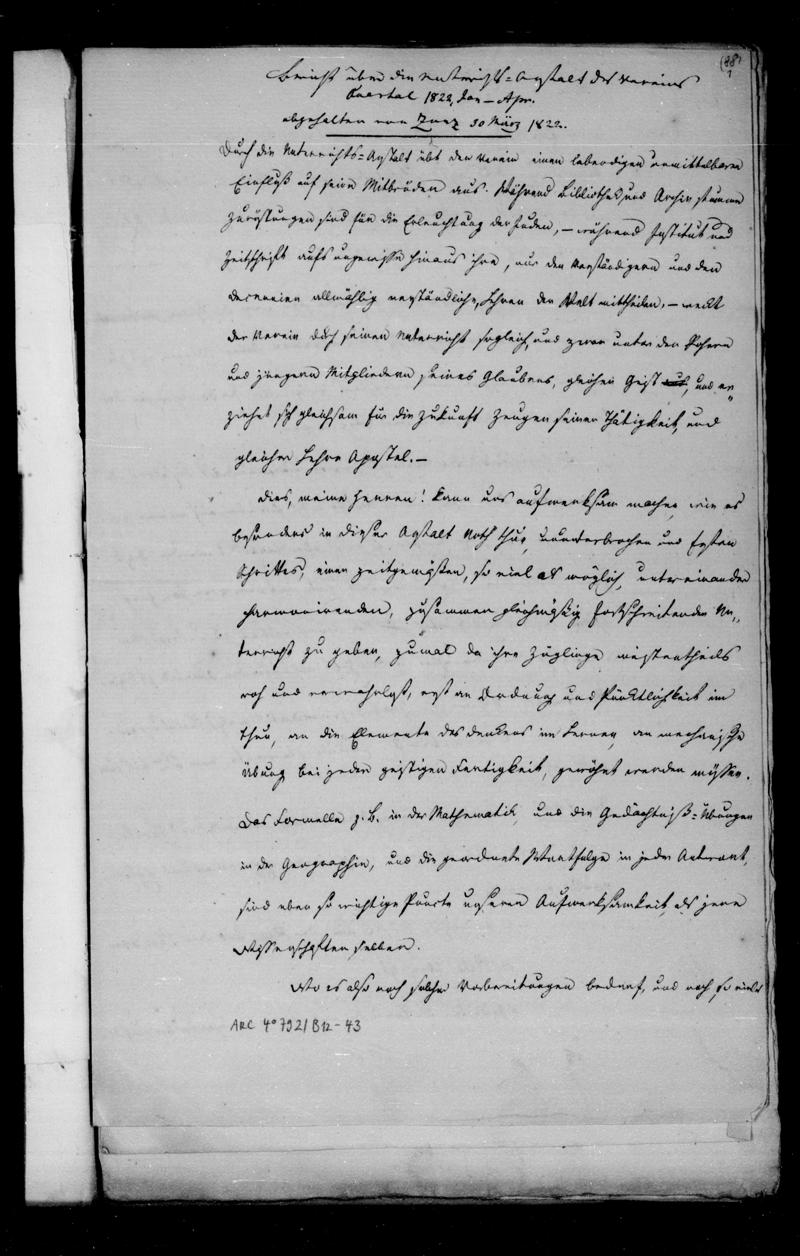 (88)
1
Bericht über die Unterrichts=Anstalt des Vereins
Quartal 1822, Jan – Apr.
abgehalten von Zunz 30 März 1822.
Durch die Unterrichts=Anstalt übt der Verein einen lebendigen unmittelbaren
Einfluß auf seine Mitbrüder aus. Während Bibliothek und Archiv stumme
Zurüstungen sind für die Erleuchtung der Juden, – während Institut und
Zeitschrift aufs ungewisse hinaus ihre, nur den Verständigern und den
allmählig verständliche, Lehren der Welt mittheilen, – weckt
der Verein durch seinen Unterricht sogleich, und zwar unter den
und jüngern Mitgliedern seines Glaubens, gleichen Geist, und er=
ziehet sich gleichsam für die Zukunft Zeugen seiner Thätigkeit, und
gleicher Lehre Apostel. –
Dies, meine Herren! kann uns aufmerksam machen, wie es
besonders in dieser Anstalt Noth thue, ununterbrochen und festen
Schrittes, einen zeitgemäßen, so viel als möglich, untereinander
harmonirenden, zusammen gleichmäßig fortschreitenden Un=
terricht zu geben, zumal da ihre Zöglinge meistentheils
roh und verwahrlost, erst an Ordnung und Pünktlichkeit im
Thun, an die Elemente des Denkens im Lernen, an mechanische
Übung bei jeder geistigen Fertigkeit, gewöhnt werden müssen.
Das Formelle z. B. in der Mathematik, und die Gedächtniß=Übungen
in der Geographie, und die geordnete Wortfolge in jeder Antwort,
sind eben so wichtige Puncte unserer Aufmerksamkeit, als jene
Wissenschaften selber.
Wo es also noch solcher Vorbereitungen bedarf, und noch so vieler
ARC 4° 792/B12-43